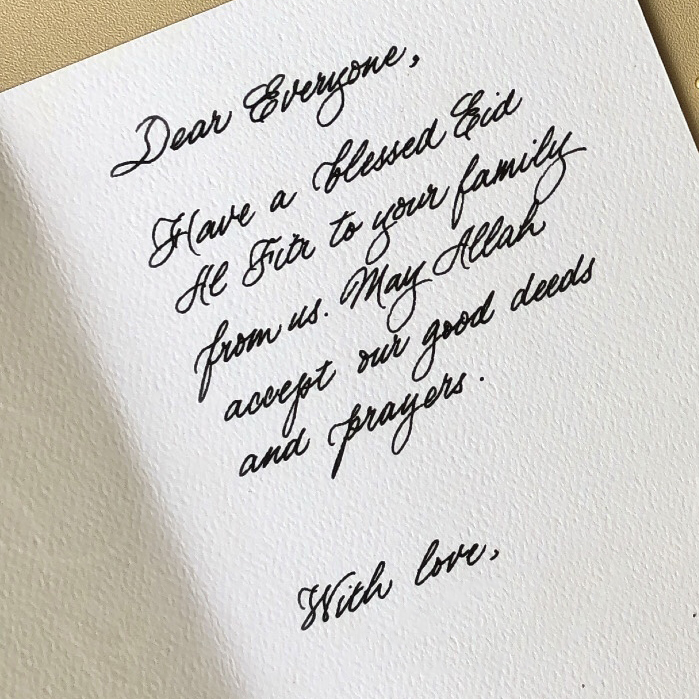 Dear Everyone,
Have a blessed Eid
Al Fitr to your family
from us. May Allah
accept our good deeds
and prayers.
With love,